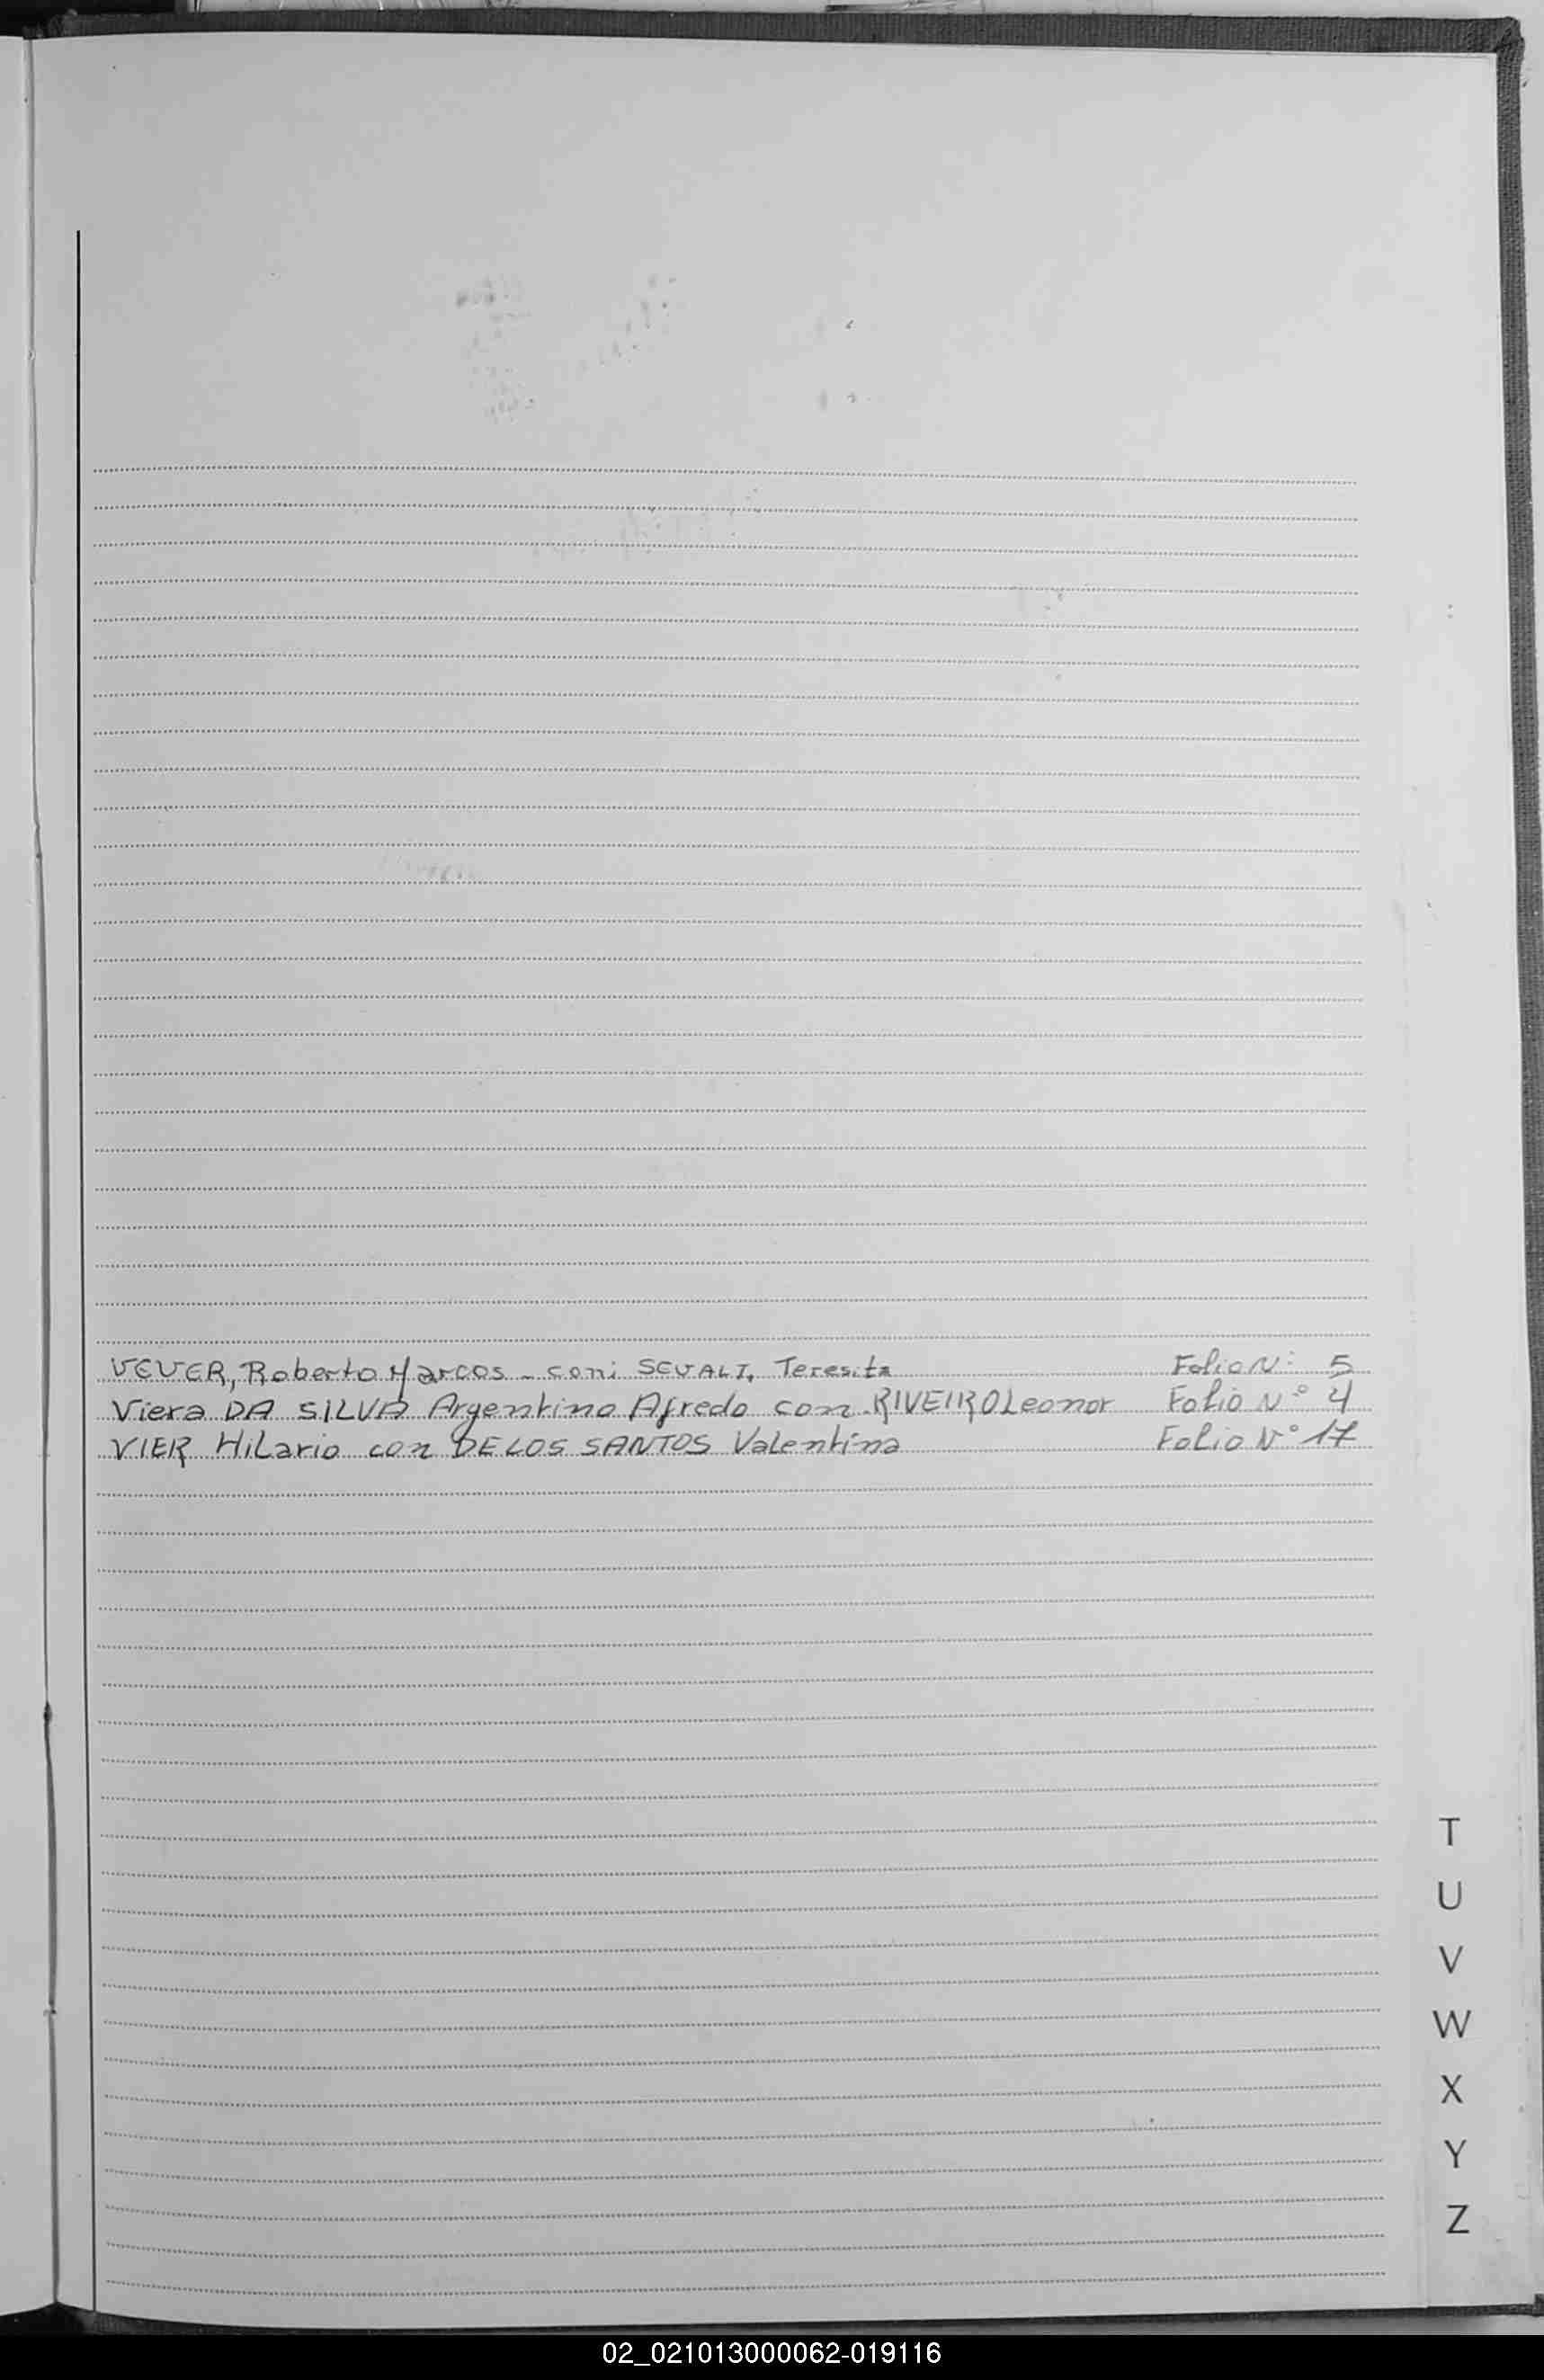 VEVER, Roberto Marcos - con: SEVALI, Teresita Folio N: 5
Viera DA SILVA Argentino Alfredo con RIVEIRO Leonor Folio N° 4
VIER Hilario con DE LOS SANTOS Valentina Folio N° 17
T
U
V
W
X
Y
Z
02_021013000062-019116